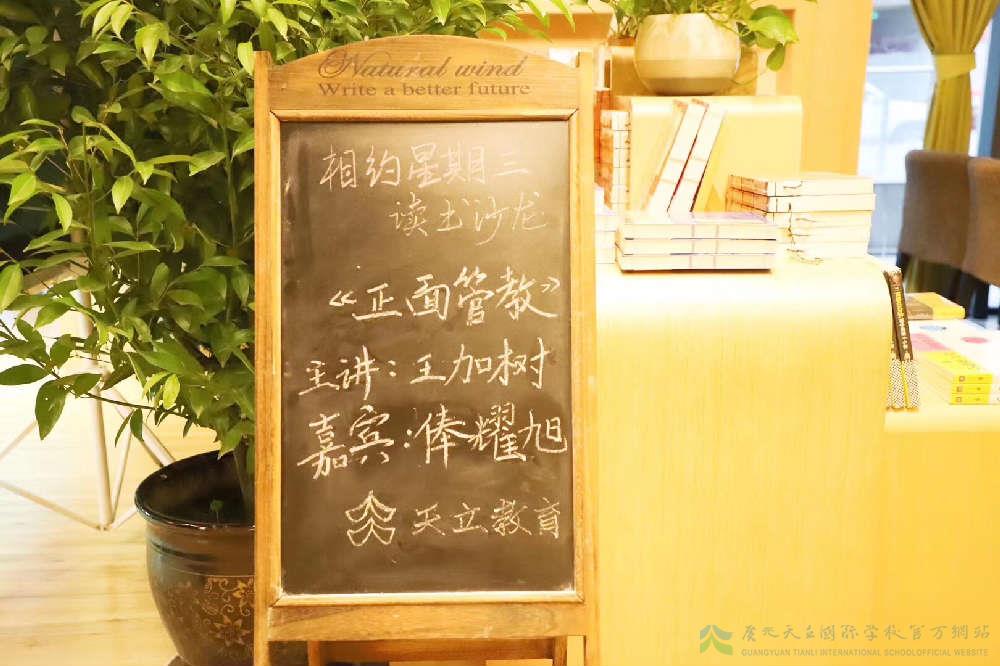 Natural wind
Write a better future
相约星期三
读书沙龙
《正面管教》
主讲：王加树
嘉宾：俸耀旭
天立教育
广元天立国际学校官方網站
GUANGYUAN TIANLI INTERNATIONAL SCHOOLOFFICIAL WEBSITE